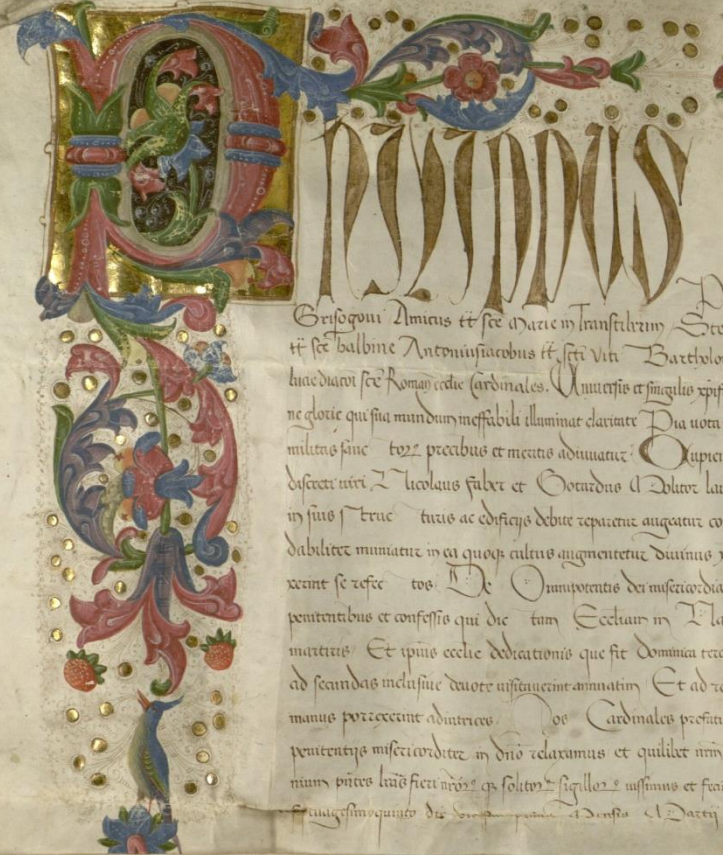 PhilippUS
Grisogoni Amicus tt sce Marie in Transtiberim
tt sce balbine Antoniusiacobus tt scti Viti Bartholo
luce diaconi scte Roman ecclie Cardinales. Universis et singulis xpif
ne glorie qui sua mundum ineffabili illuminat claritate Pia vota
militis fave torum precibus et meritis adiuvatur Cupien
discreti viri Nicolaus faber et Gotardus Molitor lai
in suis struc turis ac edificijs debite reparetur augeatur co
dabiliter muniatur in ea quoque cultus augmentetur divinus
xerint se refec tos De Omnipotentis dei misericordia
penitentibus et confessis qui dic tam Ecclesiam in
martiris Et ipius ecclie dedicationis que fit dominica terc
ad secundas inclusive devote visitaverint annuatim Et ad re
manus porrexerint adiutrices Nos Cardinales prefati
penitentijs misericorditer in dno relaxamus et quilibet nrm
nium pntes lras fieri nrorum que solitorum sigillorum iussimus et feci
ptuagesimoquinto die Mensis Martij